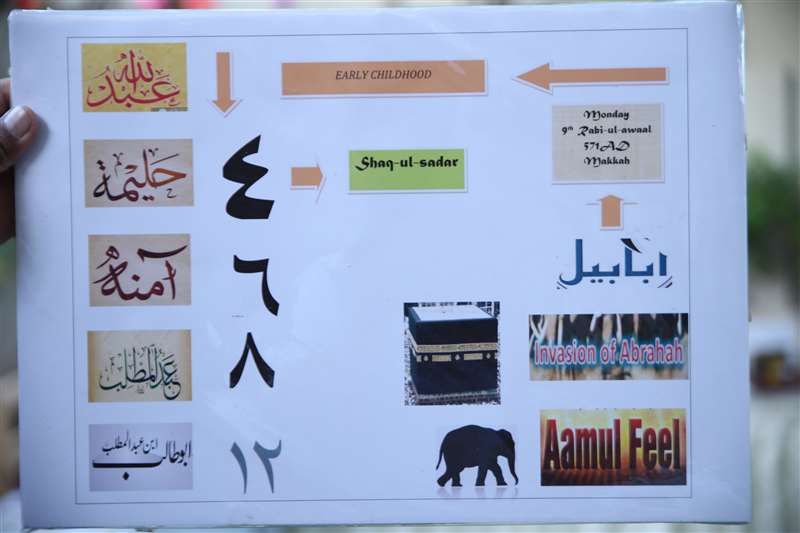 عبد الله
EARLY CHILDHOOD
Monday
9th Rabi-ul-awaal
571AD
Makkah
حليمة
٤
Shaq-ul-sadar
آمنه
٦
ابابيل
عبد المطلب
٨
Invasion of Abrahah
ابوطالب ابن عبد المطلب
١٢
Aamul Feel